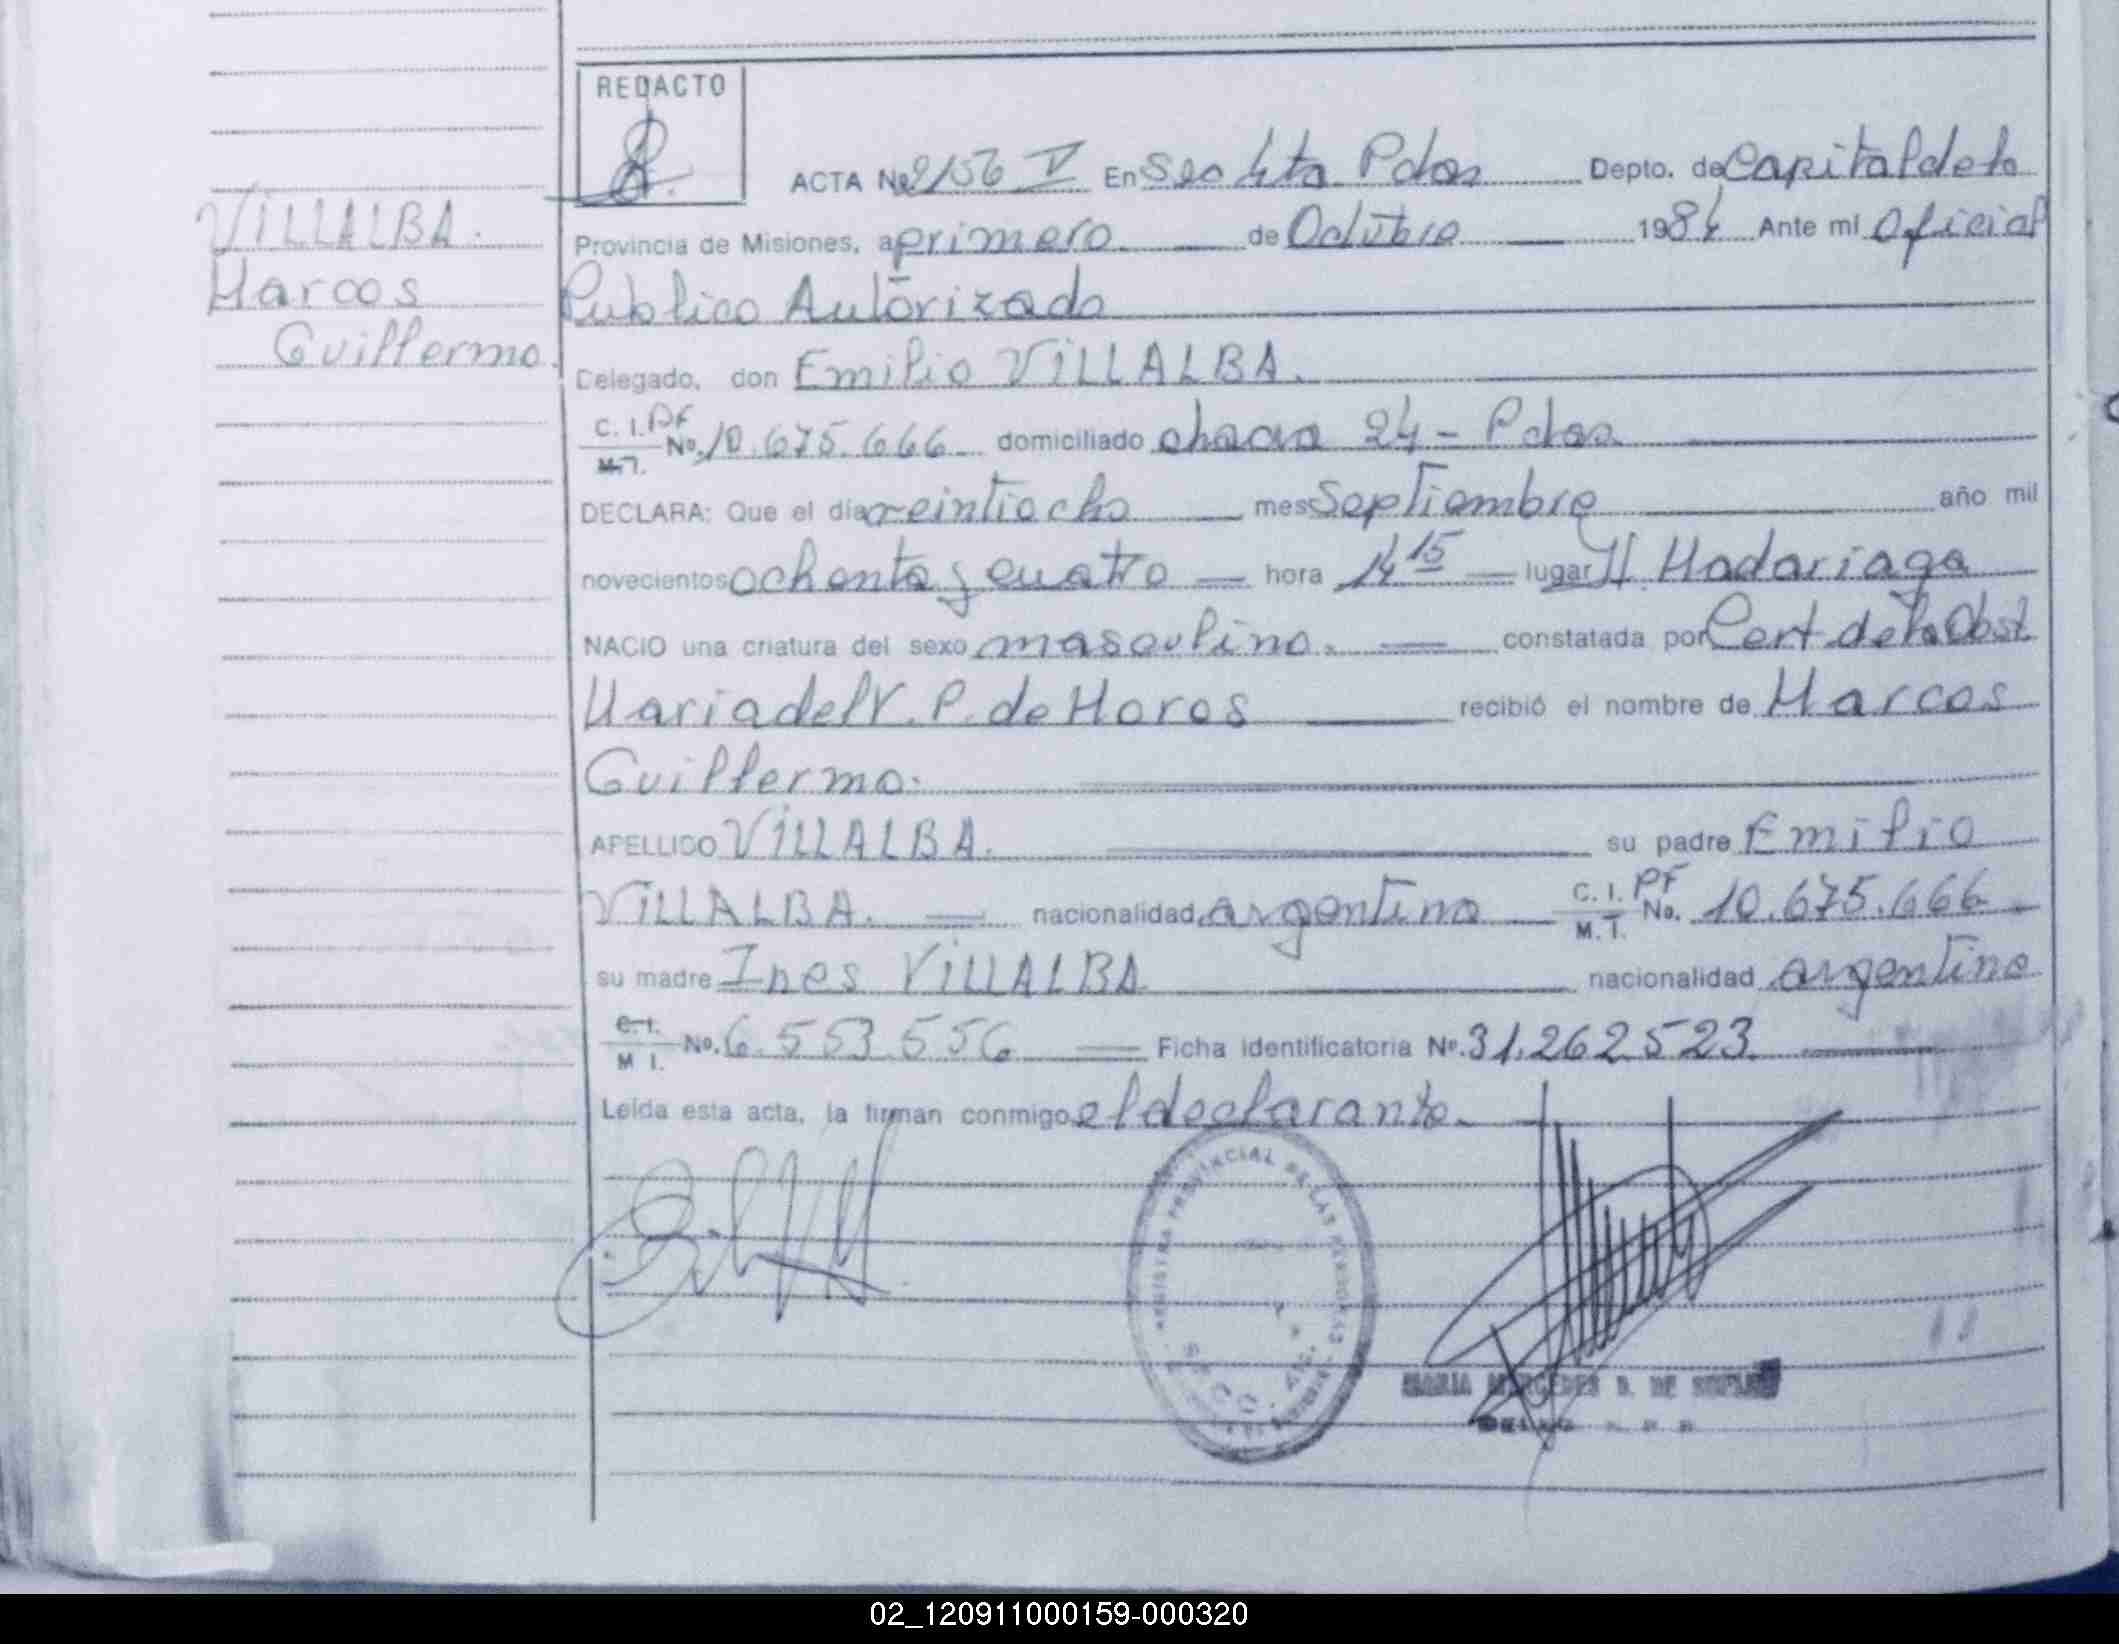 REDACTO
ACTA Nº 2156 V En Sec 4ta Pdas Depto. de Capital de la
VILLALBA.
Provincia de Misiones, a primero de Octubre 1984 Ante mi Oficial
Marcos
Publico Autorizado
Guillermo.
Delegado, don Emilio VILLALBA.
C. I. PF
M. I. No. 10.675.666 domiciliado chacra 24 - Pdas
DECLARA: Que el día veintiocho mes Septiembre año mil
novecientos ochenta y cuatro hora 14 15 lugar H. Madariaga
NACIO una criatura del sexo masculino. constatada por Cert de la Obst
Maria del V. P. de Moros recibió el nombre de Marcos
Guillermo.
APELLIDO VILLALBA. su padre Emilio
VILLALBA. nacionalidad argentino C. I. PF
M. I. No. 10.675.666
su madre Ines VILLALBA nacionalidad argentina
C. I.
M. I. No. 6.553.556 Ficha identificatoria Nº. 31.262523
Leída esta acta, la firman conmigo el declarante.
PROVINCIAL DE LAS PERSONAS
SECC.
MARIA MERCEDES D. DE
02_120911000159-000320